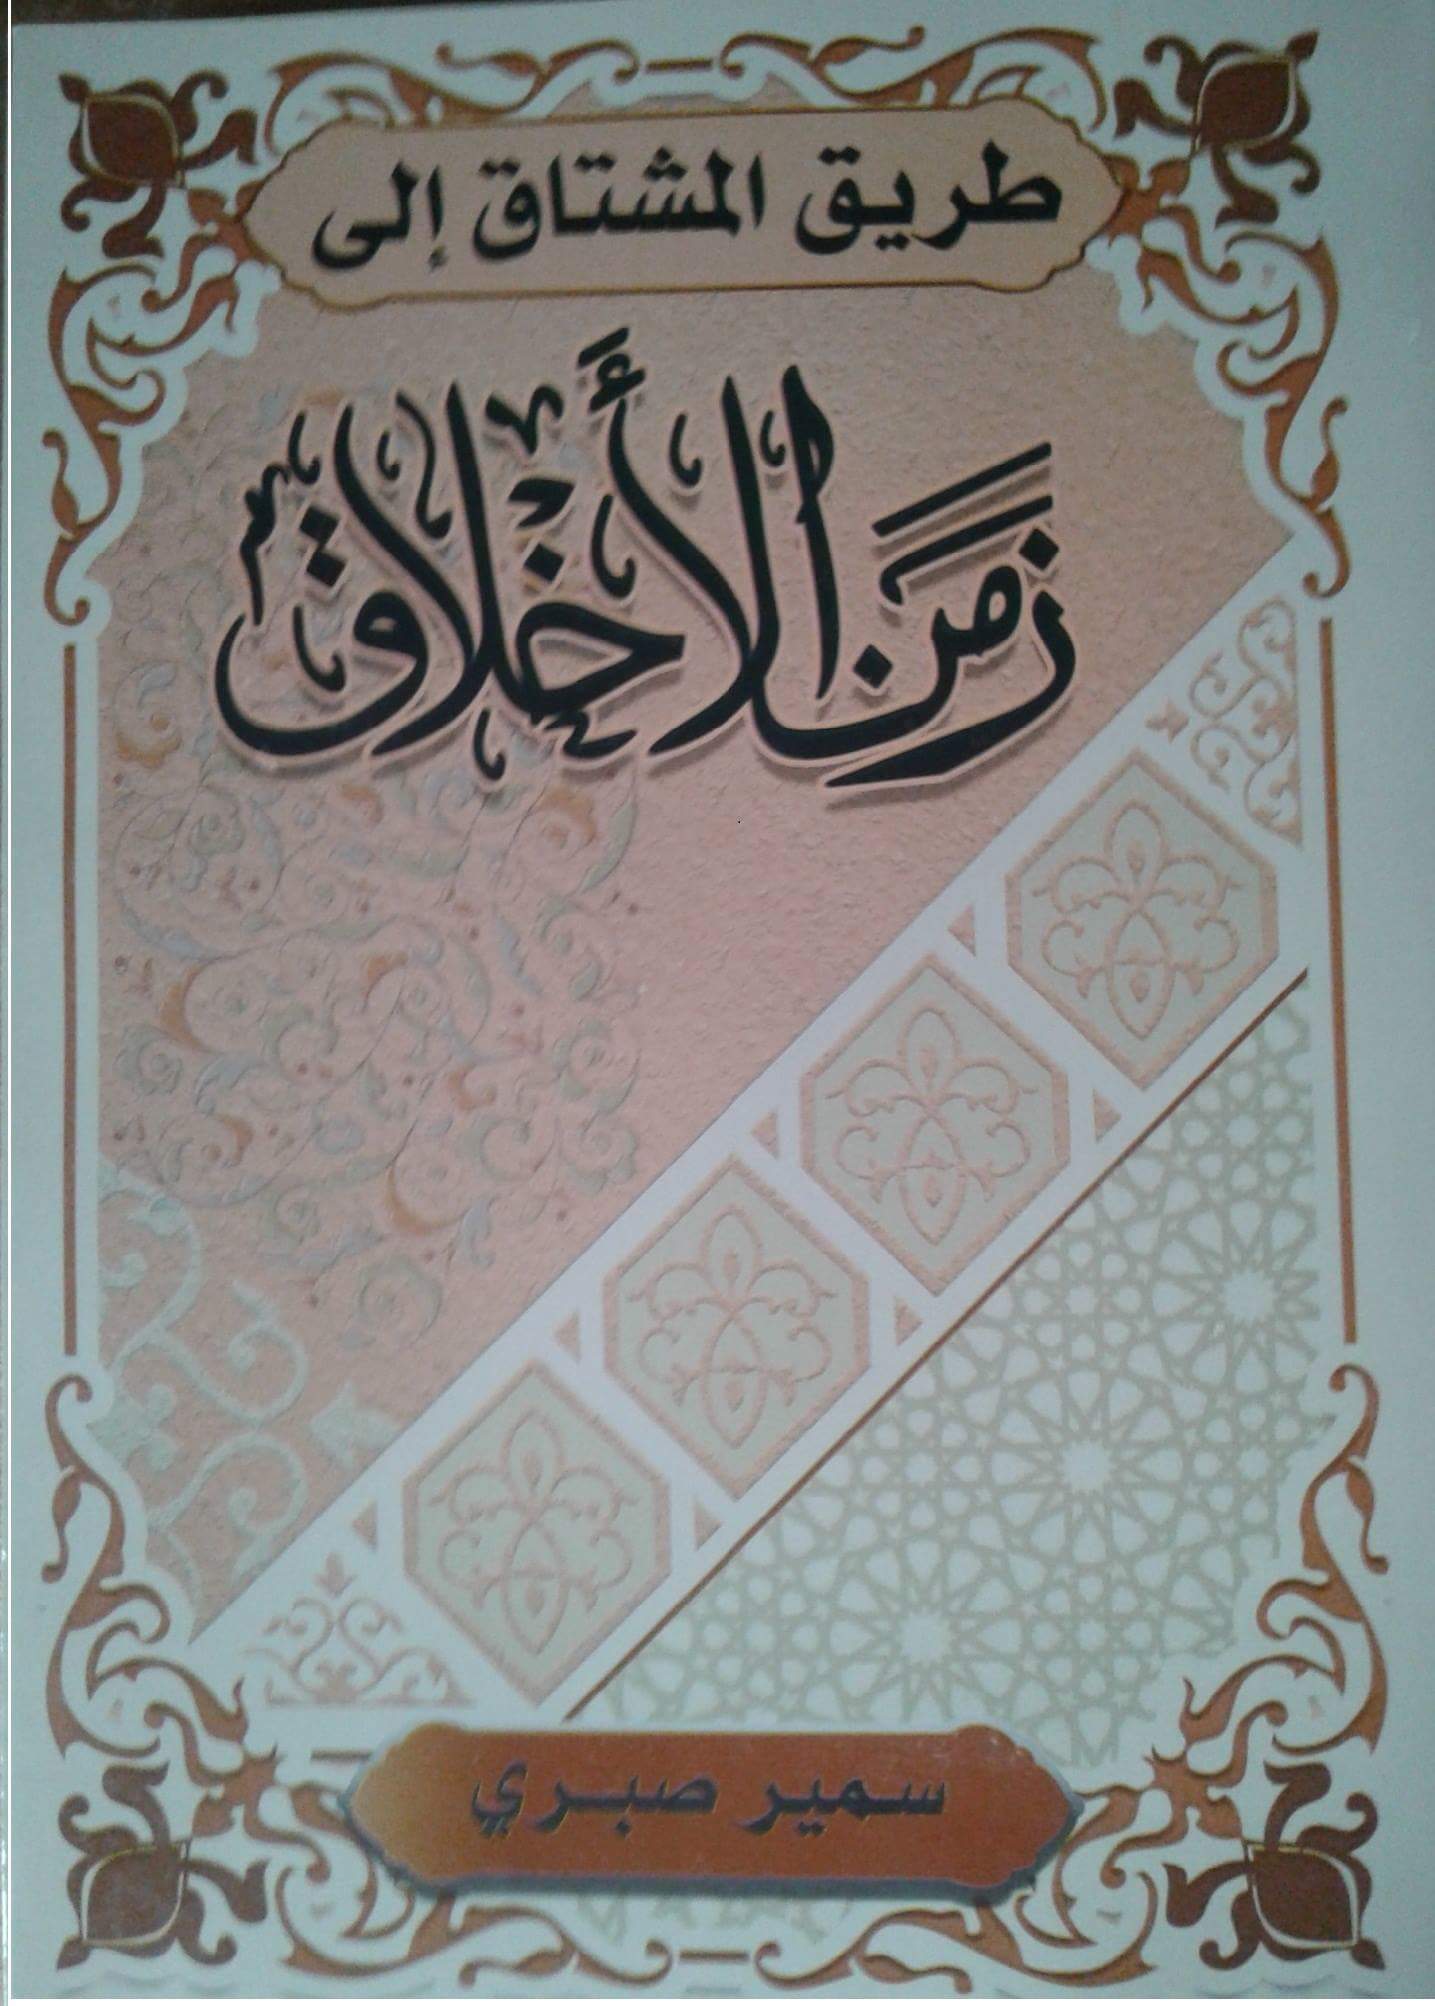 طريق المشتاق إلى
زمن الأخلاق
سمير صبري